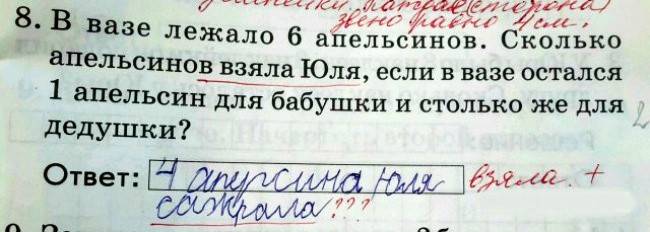 ломаной. Каждое (сторона)
звено равно 4см.
8. В вазе лежало 6 апельсинов. Сколько
апельсинов взяла Юля, если в вазе остался
1 апельсин для бабушки и столько же для
дедушки?
2
Ответ: 4 апурсина Юля взяла. +
сажрала ???